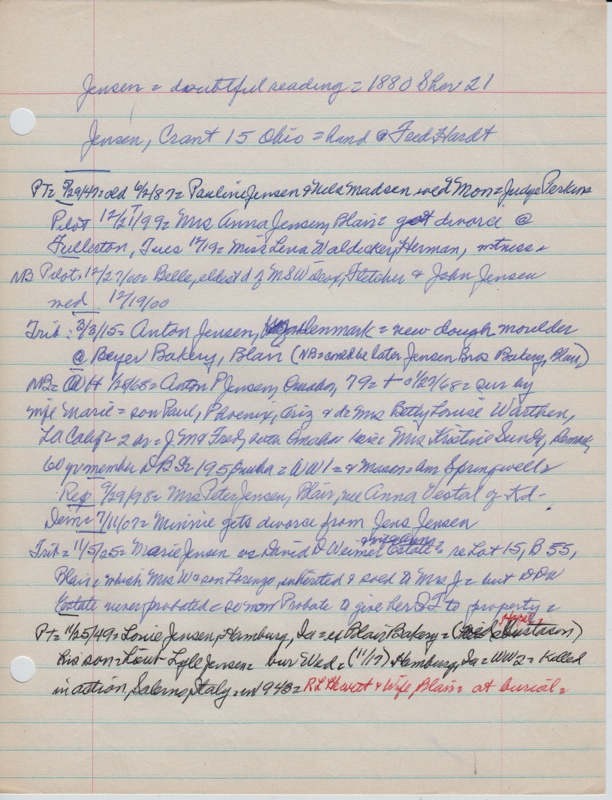 Jensen = doubtful reading = 1880 Sher 21
Jensen, Grant 15 Ohio = hand @ Fred Hardt
PT= 9/29/47= old 6/2/87= Pauline Jensen & Nels Madsen wed Mon= Judge Perkins
Pilot 12/21/99= Mrs Anna Jensen, Blair= got divorce @
Fullerton, Tues 12/19= Miss Lena Waldecker, Herman, witness=
NB Pilot, 12/27/00= Belle, eldest d of M S Wilcox, Fletcher & John Jensen
wed 12/19/00
Trib: 3/3/15= Anton Jensen, Denmark = new dough moulder
@ Beyer Bakery, Blair (NB= could be later Jensen Bros Bakery, Blair)
NB= WH 1/28/68= Anton P Jensen, Omaha, 79= + 1/27/68= sur by
wife Marie= son Paul, Phoenix, Ariz & da Mrs Betty Louise Warthen,
LA Calif= 2 br= J M & Fred, both Omaha= sis= Mrs Kristine Sundy, Denmark,
60 yr member DB 195, Omaha= WW1= & Mason= Am Springwell
Rep 9/29/98= Mrs Peter Jensen, Blair, nee Anna Vestal of Kd-
Dem= 7/11/07= Minnie gets divorce from Jens Jensen
Trib= 11/5/25= Marie Jensen vs David D Weimer Estate= re Lot 15, B 55,
Blair= which Mrs W= son Lorenzo, inherited & sold to Mrs J= but DDW
Estate never probated= so now Probate to give her QT to property=
PT= 11/25/49= Louie Jensen, Hamburg, Ia= ex Blair Bakery= (Gustason)
his son= Lieut Lyle Jensen= bur Wed= (11/17) Hamburg, Ia= WW2= killed
in action, Salerno, Italy= in 1943= R L Hewett & Wife, Blair= at burial=